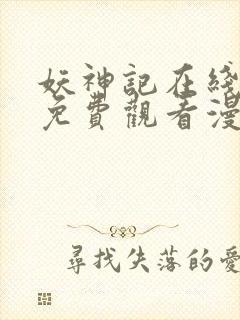 妖神記在綫
免費觀看漫
尋找失落的愛